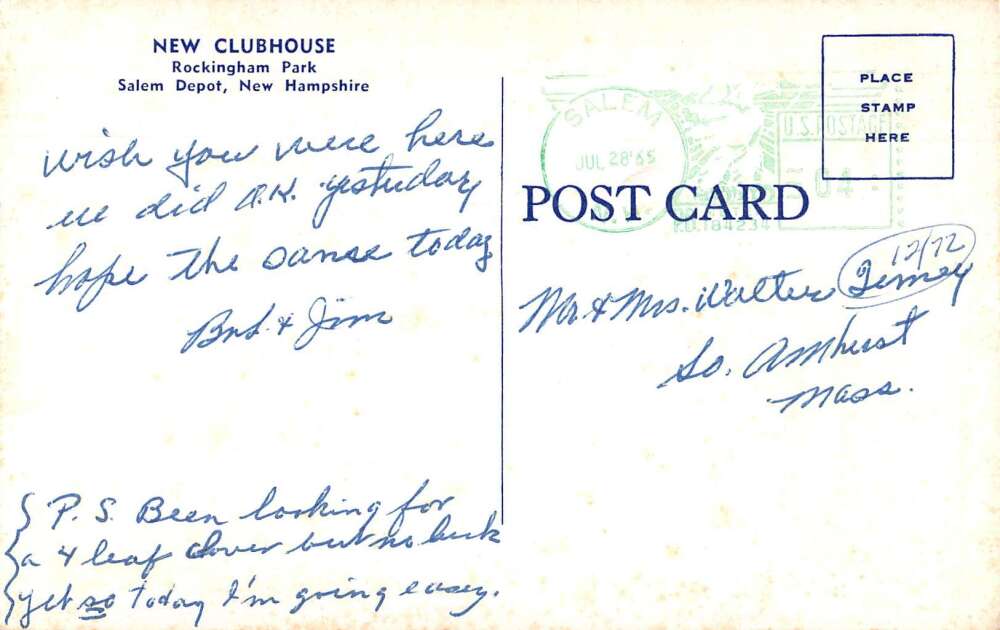 NEW CLUBHOUSE
Rockingham Park
Salem Depot, New Hampshire
wish you were here
we did O.K. yesterday
hope the same today
& Jim
P. S. Been looking for
a 4 leaf clover but no luck
yet so today I'm going easy.
PLACE
STAMP
HERE
SALEM
JUL 28 '65
U.S. POSTAGE
04
P.O. 184234
POST CARD
12/72
Mr & Mrs. Walter
So. Amherst
Mass.